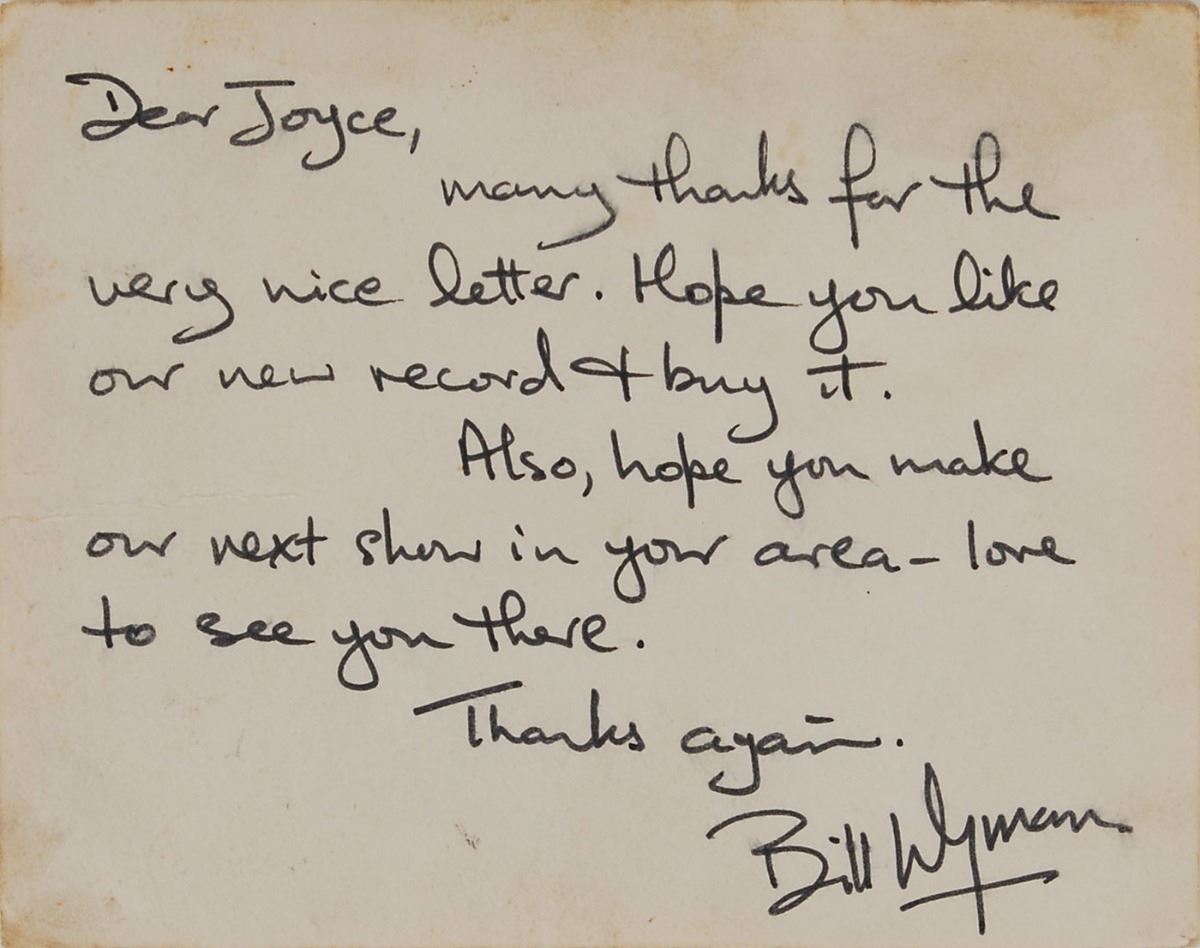 Dear Joyce,
many thanks for the
very nice letter. Hope you like
our new record & buy it.
Also, hope you make
our next show in your area – love
to see you there.
Thanks again.
Bill Wyman